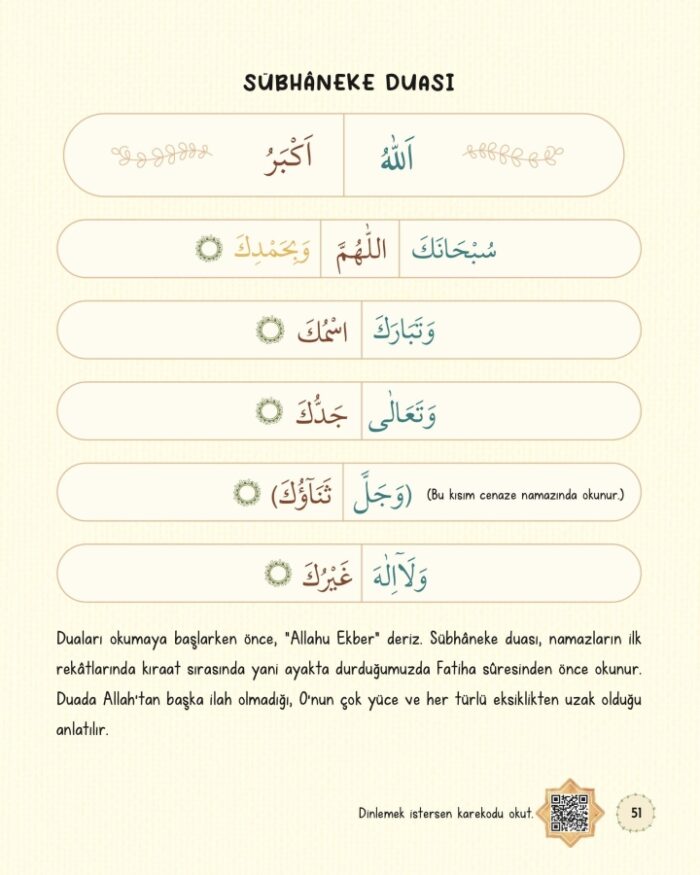 SÜBHÂNEKE DUASI
اَللّٰهُ اَكْبَرُ
سُبْحَانَكَ اللّٰهُمَّ وَبِحَمْدِكَ
وَتَبَارَكَ اسْمُكَ
وَتَعَالٰى جَدُّكَ
(وَجَلَّ ثَنَآؤُكَ) (Bu kısım cenaze namazında okunur.)
وَلَٓا اِلٰهَ غَيْرُكَ
Duaları okumaya başlarken önce, "Allahu Ekber" deriz. Sübhâneke duası, namazların ilk
rekâtlarında kıraat sırasında yani ayakta durduğumuzda Fatiha sûresinden önce okunur.
Duada Allah'tan başka ilah olmadığı, O'nun çok yüce ve her türlü eksiklikten uzak olduğu
anlatılır.
Dinlemek istersen karekodu okut.
51